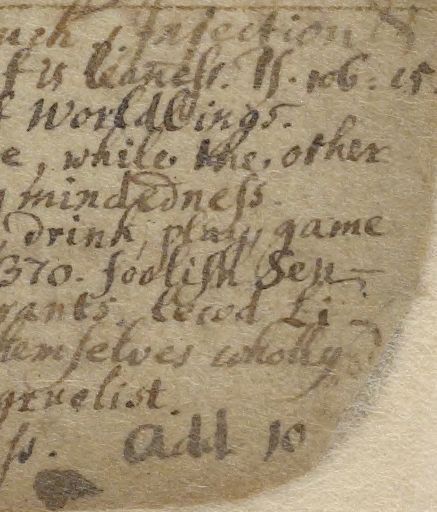 Infection
is leaness. Ps. 106. 15.
Worldlings.
e, while the other
mindedness
, drink, play, game
370. foolish Sen-
rants. lewd Li-
hemselves wholly
gruelist.
ss. Add 10